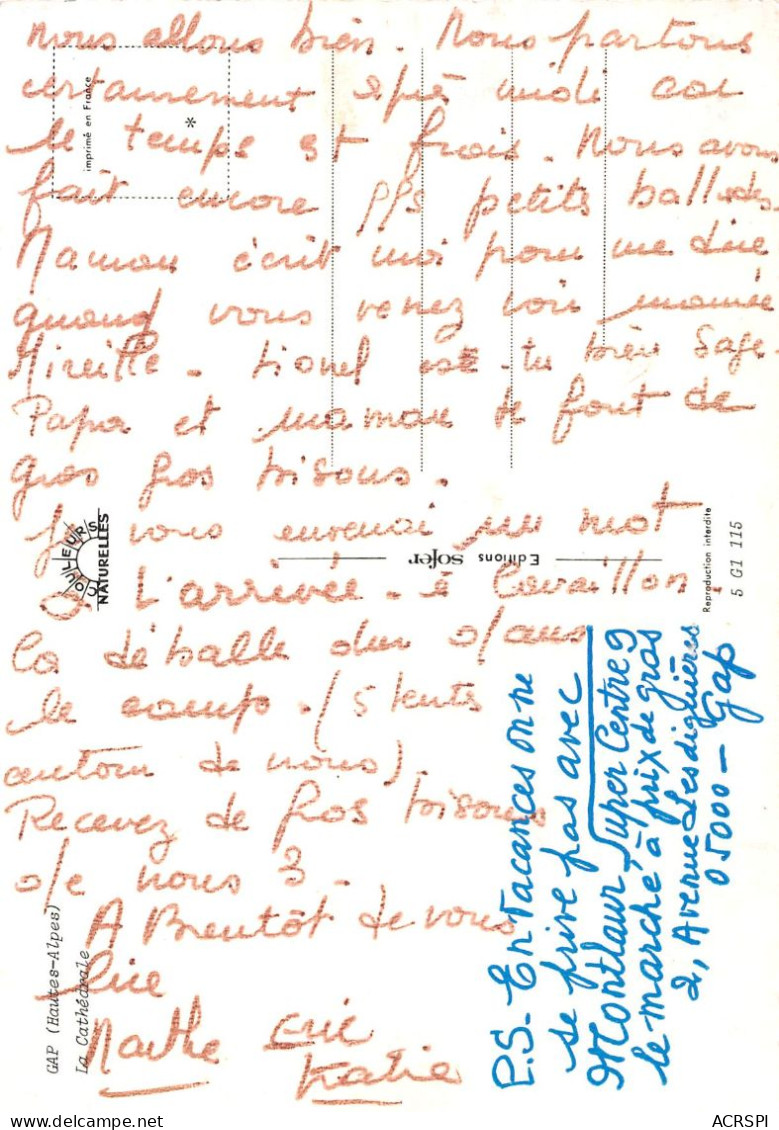 Nous allons bien. Nous partons
certainement apré midi car
le temps est frais. Nous avons
fait encore pls petits ballades
Maman écrit moi pour me dire
quand vous venez voir mamie
Mireille. Lionel est-tu bien sage.
Papa et maman te font de
gros gros bisous.
Je vous enverrai un mot
à l'arrivée. à Cavaillon.
La déballe dur dans
le camp. (5 tents
autour de nous)
Recevez de gros bisous
de nous 3.
A Bientôt de vous
lire
Marthe Eric
Katie
P.S. En vacances on ne
se prive pas avec
Montlaur Super Centre 9
le marché à prix de gros
2, Avenue Lesdiguières
05000 - Gap
imprimé en France
*
COULEURS
NATURELLES
Editions sofer
Reproduction interdite
5 G1 115
GAP (Hautes-Alpes)
La Cathédrale
ACRSPI